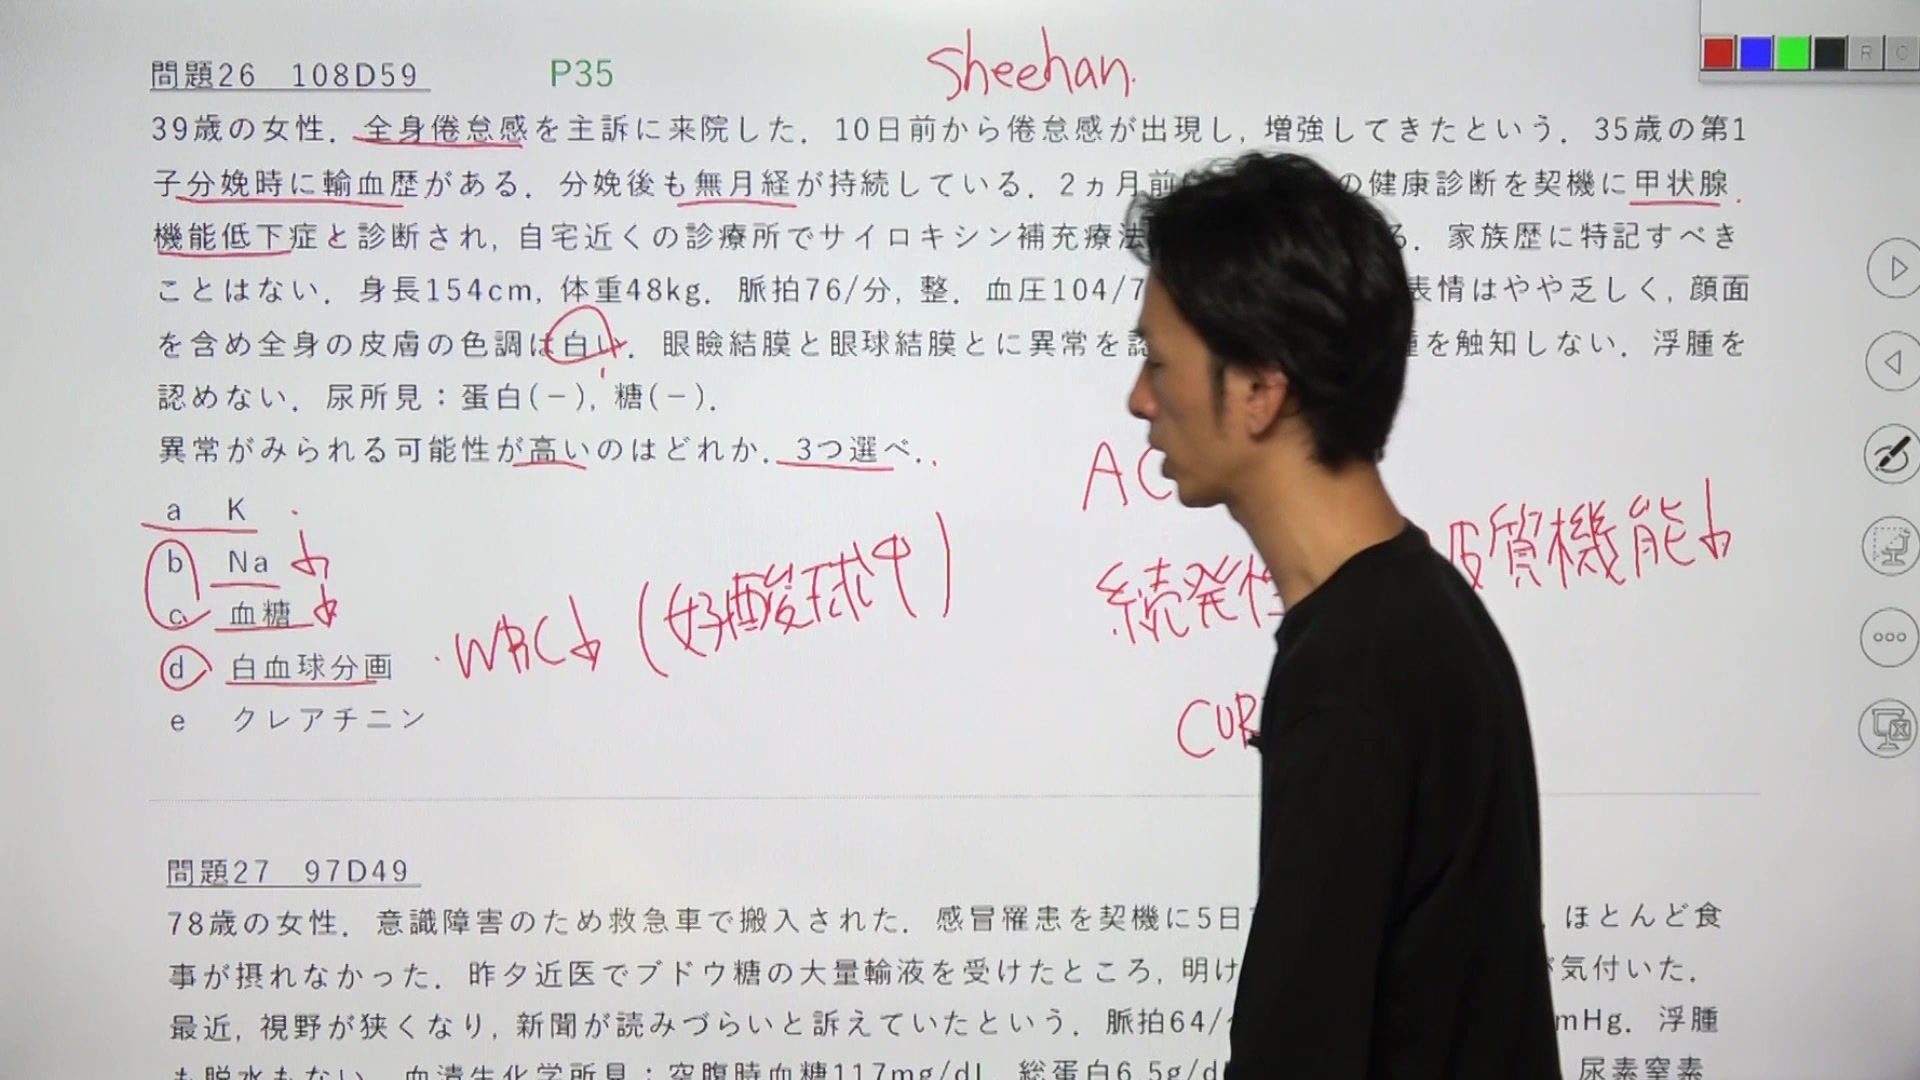 Sheehan.
問題26 108D59 P35
39歳の女性．全身倦怠感を主訴に来院した．10日前から倦怠感が出現し，増強してきたという．35歳の第1
子分娩時に輸血歴がある．分娩後も無月経が持続している．2ヵ月前 の健康診断を契機に甲状腺
機能低下症と診断され，自宅近くの診療所でサイロキシン補充療法 る．家族歴に特記すべき
ことはない．身長154cm，体重48kg．脈拍76/分，整．血圧104/7 表情はやや乏しく，顔面
を含め全身の皮膚の色調は白い．眼瞼結膜と眼球結膜とに異常を認 を触知しない．浮腫を
認めない．尿所見：蛋白(－)，糖(－)．
異常がみられる可能性が高いのはどれか．3つ選べ．
AC
a K
b Na ↓
c 血糖 ↓
d 白血球分画 WBC↓(好酸球↑)
続発性 皮質機能↓
e クレアチニン
問題27 97D49
78歳の女性．意識障害のため救急車で搬入された．感冒罹患を契機に5日 ，ほとんど食
事が摂れなかった．昨夕近医でブドウ糖の大量輸液を受けたところ，明け が気付いた．
最近，視野が狭くなり，新聞が読みづらいと訴えていたという．脈拍64/ mmHg．浮腫
も脱水もない．血清生化学所見：空腹時血糖117mg/dl，総蛋白6.5g/d 尿素窒素